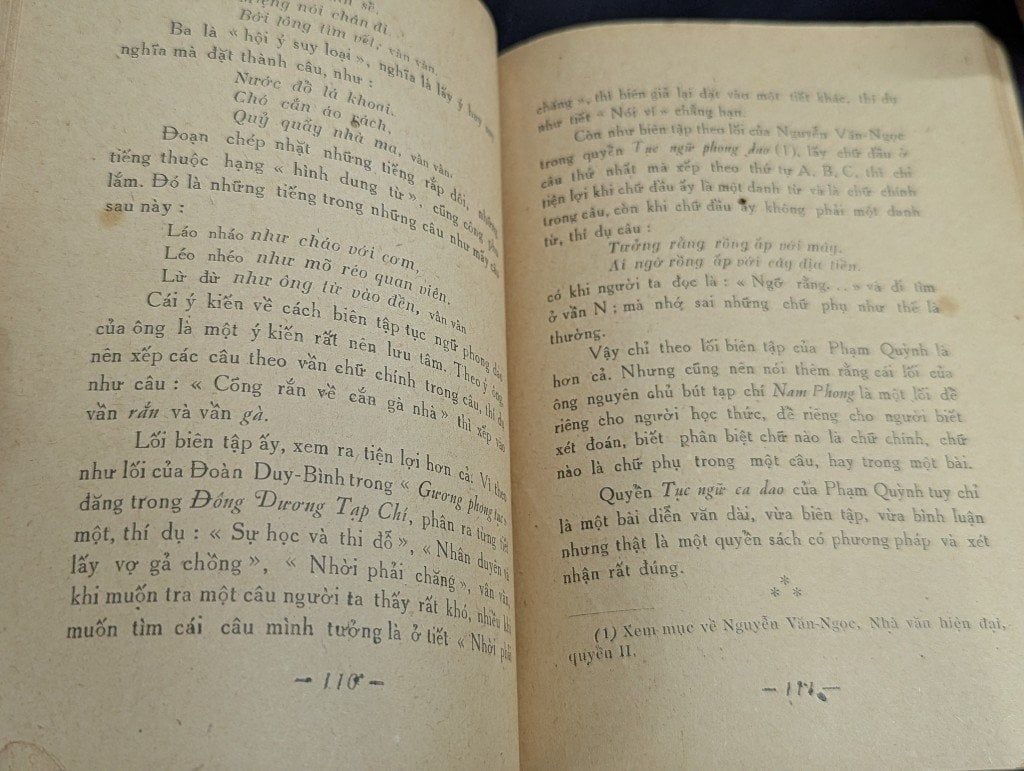 miệng nói chân đi.
Bởi lông tìm vết, vân vân.
Ba là « hội ý suy loại », nghĩa là lấy ý hay
nghĩa mà đặt thành câu, như :
Nước đổ lá khoai.
Chó cắn áo rách,
Quỷ quấy nhà ma, vân vân.
Đoạn chép nhặt những tiếng rắp đôi, những
tiếng thuộc hạng « hình dung từ », cũng công phu
lắm. Đó là những tiếng trong những câu như mấy câu
sau này :
Láo nháo như cháo với cơm,
Léo nhéo như mõ réo quan viên.
Lừ đừ như ông từ vào đền, vân vân
Cái ý kiến về cách biên tập tục ngữ phong dao
của ông là một ý kiến rất nên lưu tâm. Theo ý ông
nên xếp các câu theo vần chữ chính trong câu, thí dụ
như câu : « Cõng rắn về cắn gà nhà » thì xếp vào
vần rắn và vần gà.
Lối biên tập ấy, xem ra tiện lợi hơn cả. Vì theo
như lối của Đoàn Duy-Bình trong « Gương phong tục »
đăng trong Đông Dương Tạp Chí, phân ra từng tiết
một, thí dụ : « Sự học và thi đỗ », « Nhân duyên và
lấy vợ gả chồng », « Nhời phải chăng », vân vân,
khi muốn tra một câu người ta thấy rất khó, nhiều khi
muốn tìm cái câu mình tưởng là ở tiết « Nhời phải
— 110 —
chăng », thì biên giả lại đặt vào một tiết khác, thí dụ
như tiết « Nói ví » chẳng hạn.
Còn như biên tập theo lối của Nguyễn Văn-Ngọc
trong quyển Tục ngữ phong dao (1), lấy chữ đầu ở
câu thứ nhất mà xếp theo thứ tự A, B, C, thì chỉ
tiện lợi khi chữ đầu ấy là một danh từ và là chữ chính
trong câu, còn khi chữ đầu ấy không phải một danh
từ, thí dụ câu :
Tưởng rằng rồng ấp với mây,
Ai ngờ rồng ấp với cây địa tiền.
có khi người ta đọc là : « Ngỡ rằng... » và đi tìm
ở vần N ; mà nhớ sai những chữ phụ như thế là
thường.
Vậy chỉ theo lối biên tập của Phạm Quỳnh là
hơn cả. Nhưng cũng nên nói thêm rằng cái lối của
ông nguyên chủ bút tạp chí Nam Phong là một lối để
riêng cho người học thức, để riêng cho người biết
xét đoán, biết phân biệt chữ nào là chữ chính, chữ
nào là chữ phụ trong một câu, hay trong một bài.
Quyển Tục ngữ ca dao của Phạm Quỳnh tuy chỉ
là một bài diễn văn dài, vừa biên tập, vừa bình luận
nhưng thật là một quyển sách có phương pháp và xét
nhận rất đúng.
*
* *
(1) Xem mục về Nguyễn Văn-Ngọc, Nhà văn hiện đại,
quyển II.
— 111 —